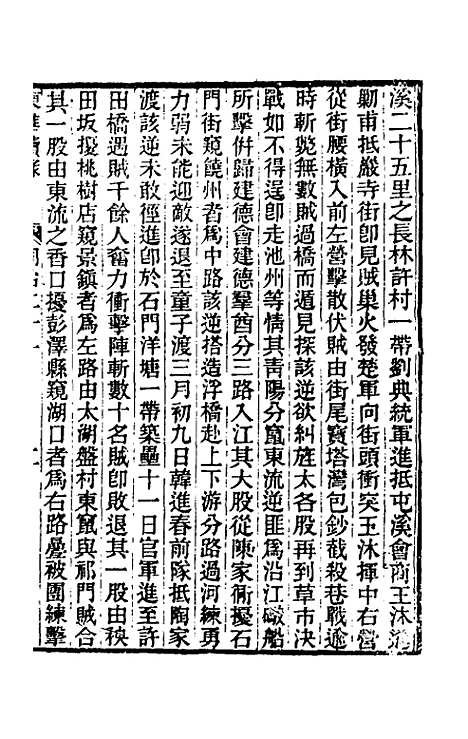 溪二十五里之長林許村一帶劉典統軍進抵屯溪會商王沐進
勦甫抵嚴寺街卽見賊巢火發楚軍向街頭衝突王沐揮中右營
從街腰橫入前左營擊散伏賊由街尾寶塔灣包鈔截殺巷戰逾
時斬斃無數賊過橋而遁見探該逆欲糾旌太各股再到草市決
戰如不得逞卽走池州等情其靑陽分竄東流逆匪爲沿江礮船
所擊倂歸建德會建德羣酋分三路入江其大股從陳家衝擾石
門街窺饒州者爲中路該逆搭造浮橋赴上下游分路過河練勇
力弱未能迎敵遂退至童子渡三月初九日韓進春前隊抵陶家
渡該逆未敢徑進卽於石門洋塘一帶築壘十一日官軍進至許
田橋遇賊千餘人奮力衝擊陣斬數十名賊卽敗退其一股由秧
田坂擾桃樹店窺景鎭者爲左路由太湖盤村東竄與祁門賊合
其一股由東流之香口擾彭澤縣窺湖口者爲右路疊被團練擊
東華續錄 同治二十